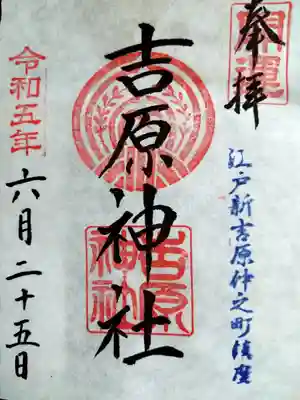 奉拝
開運
江戸新吉原仲之町鎮座
吉原神社
吉原神社
令和五年
六月二十五日